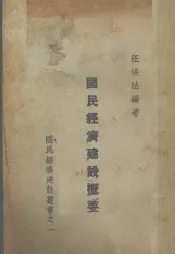 汪洪法編著
國民經濟建設概要
國民經濟建設叢書之一